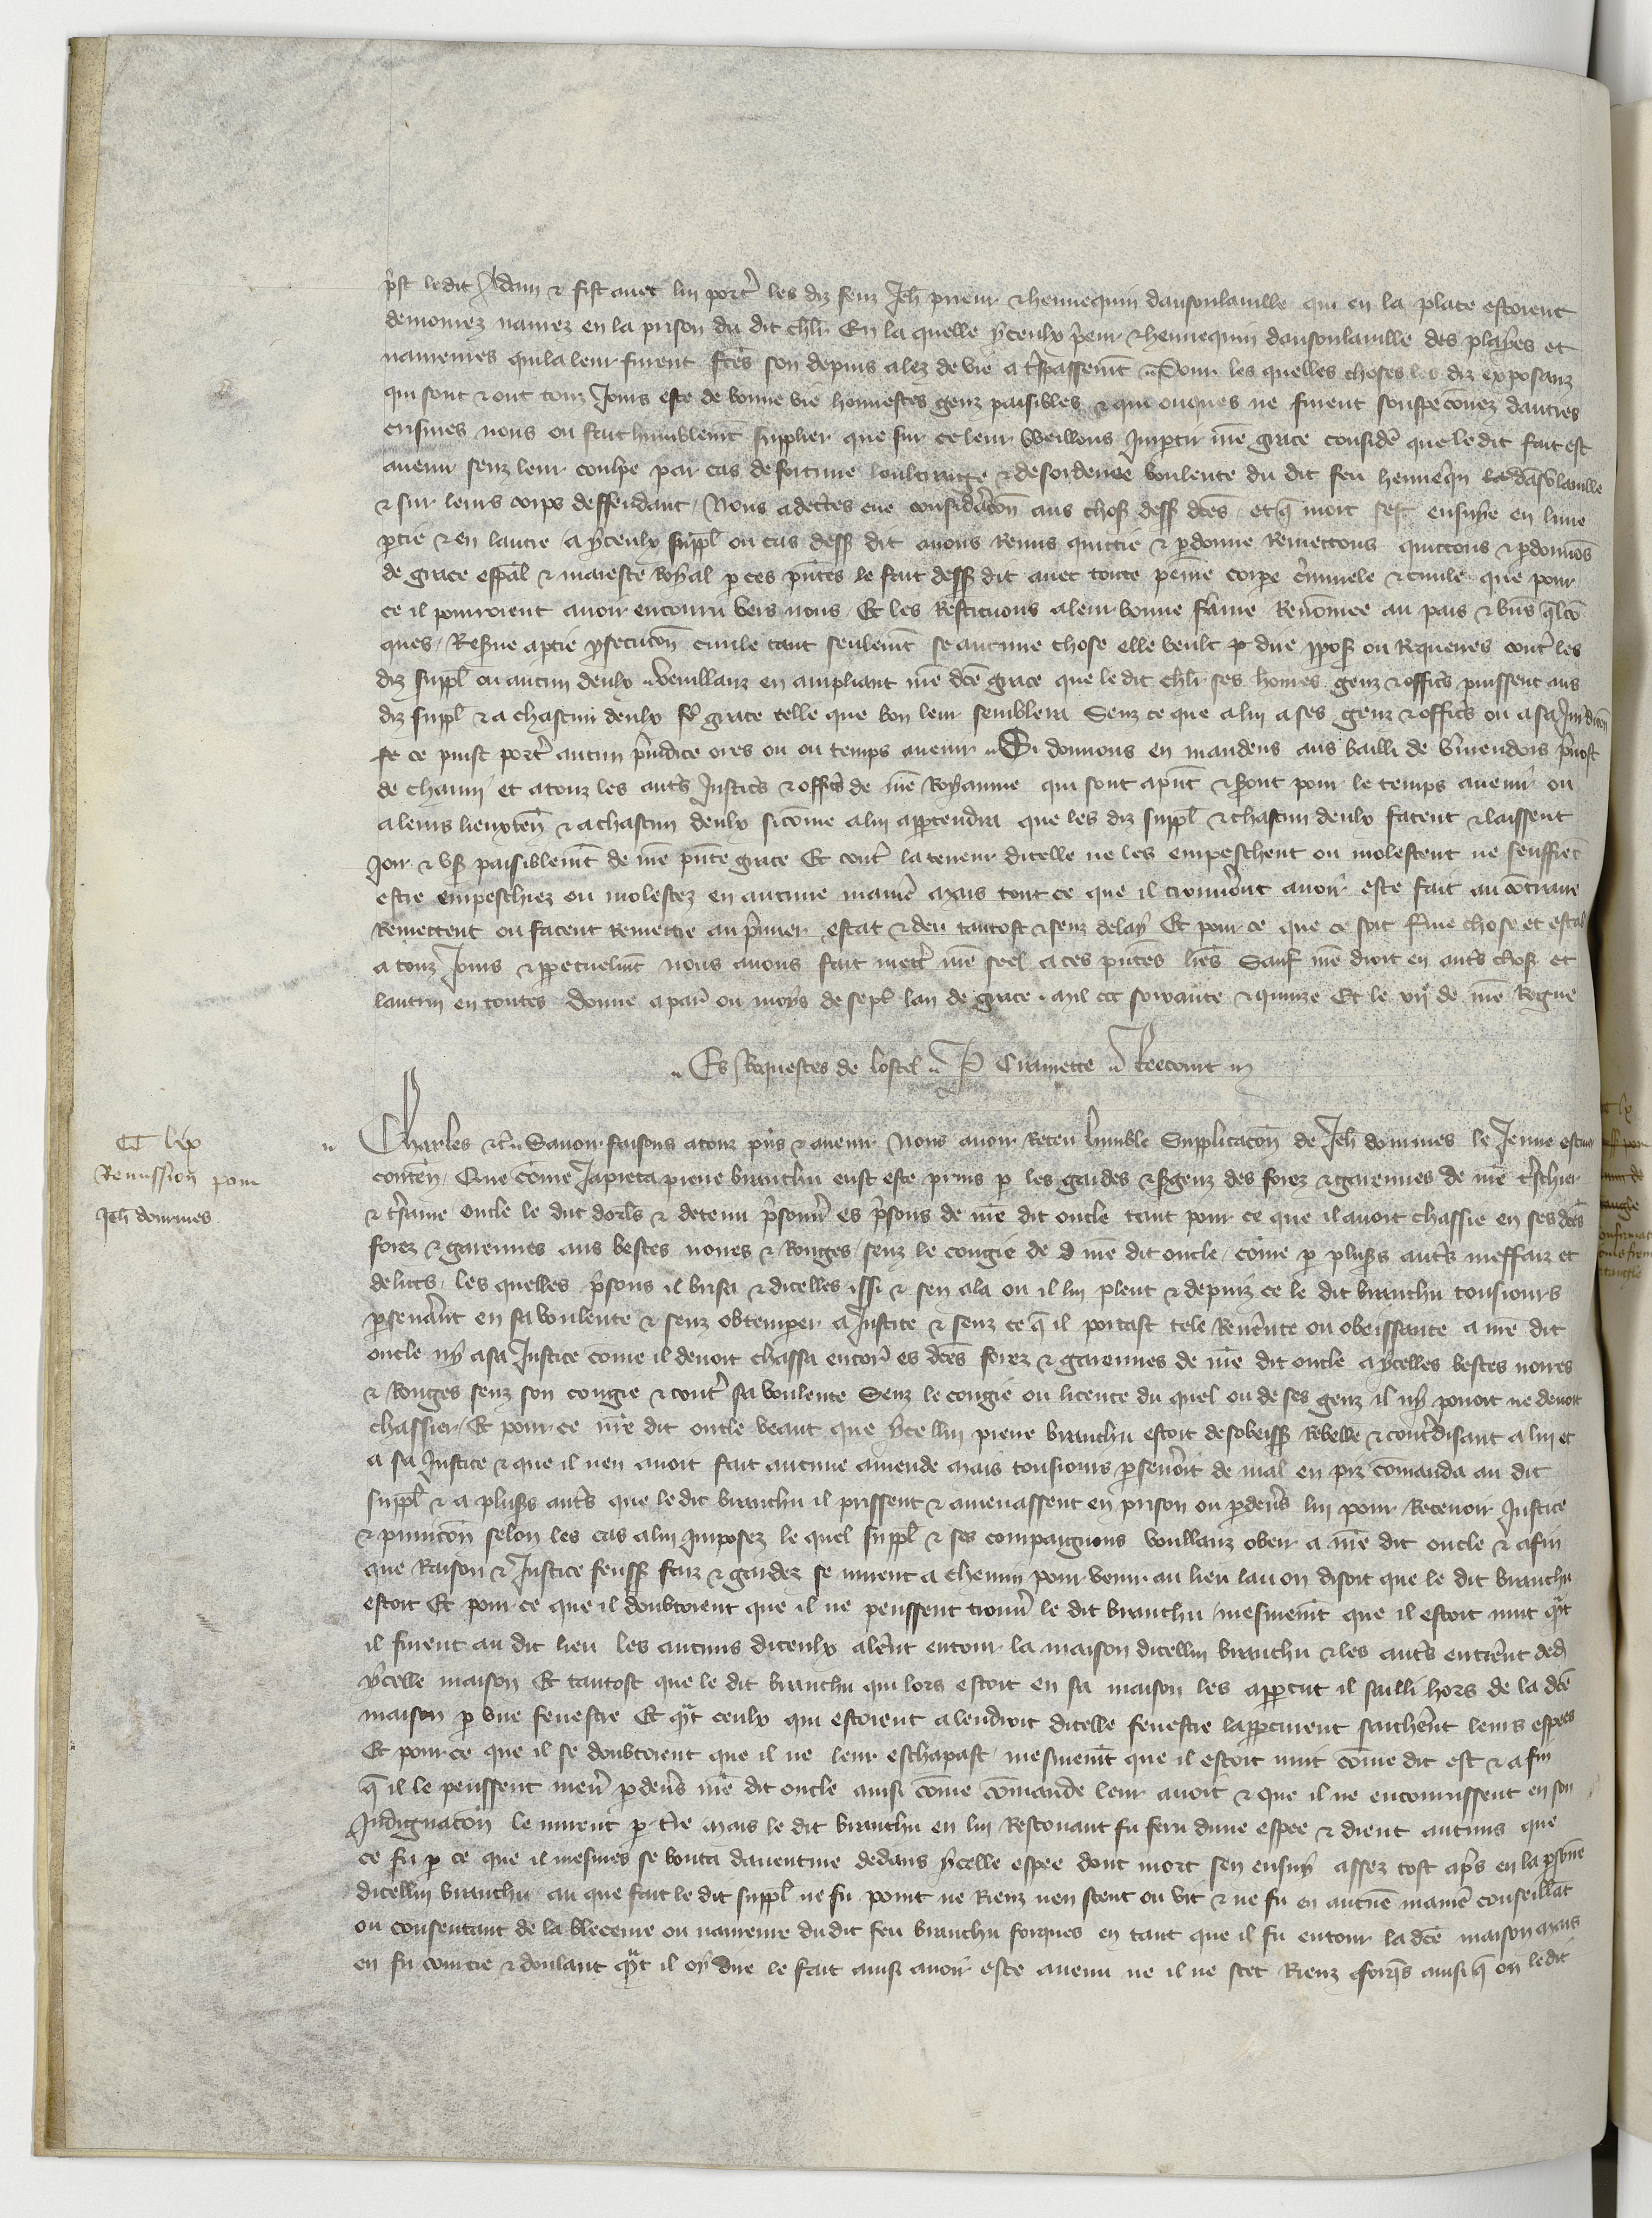 p̃st ledit Adam & fist auec lui port̃ les diz feux Jeh̃ prieur & hennequin dansonlauille qui en la place estoient
demourez naurez en la prison du dit chlr̃ En la quelle yceulx p̃eur & hennequin dansonlauille des playes et
naureures qui la leur furent fc̃es son depuis alez de vie a t̃spassemẽt Pour les quelles choses les diz exposanz
qui sont & ont touz Jours este de bonne vie honnestes genz paisibles & qui onques ne furent souspeconez dautres
crismes nous ou fait humblemẽt supplier que sur ce leur Vueillons Jmp̃tir nr̃e grace considẽ que le dit fait est
auenu senz leur coulpe par cas de fortune loultraige & desordenee voulente du dit feu henneq̃n dãsõlauille
& sur leurs corps deffendant / Nous adec̃tes eue considẽracõn aus chos̃ dess̃ dc̃es et q̃ mort sest ensuye en lune
p̃tie & en lautre a yceulx suppl̃ ou cas dess̃ dit auons Remis quittie & p̃donne Remettons quittons & p̃donnõs
de grace esp̃al & maieste Royal p̃ ces p̃ñtes le fait dess̃ dit auec toute peine corp̃e c̃iminele & ciuile que pour
ce il pourroient auoir encouru vers nous Et les Restituons a leur bonne fãme Renõmee au pais & biẽs q̃lcõ
ques / Res̃ue a p̃tie p̃secucõn ciuile tant seulemẽt se aucune chose elle veult p̃ due p̃pos̃ ou Requerre cont̃ les
diz suppl̃ ou aucun deulx veuillanz en ampliant nr̃e dc̃e grace que le dit chlr̃ ses hom̃es genz & offic̃s puissent aus
diz suppl̃ & a chascun deulx fẽ grace telle que bon leur semblera Senz ce que a lui a ses genz & offic̃s ou a sa Jur̃dicõn
ce puist port̃ aucun p̃iudice ores ou ou temps auenir Si donnons en mandens aus bailli de v̓mendois p̃uost
de chauni et a touz les aut̃s Justic̃s & offic̃s de nr̃e Royaume qui sont ap̃nt & s̃ont pour le temps auenir ou
a leurs lieuxteñ & a chascun deulx sicõme a lui app̃tendra que les diz suppl̃ & chascun deulx facent & laissent
Joir & vs̃ paisiblemẽt de nr̃e p̃ñte grace Et cont̃ la teneur dicelle ne les empeschent ou molestent ne seuffrẽt
estre empeschiez ou molestez en aucune manie᷑ Mais tout ce que il trouuer̃ont auoir este fait au cõtraire
Remettent ou facent Remettre au p̃mier estat & deu tantost & senz delay Et pour ce que ce soit f̃me chose et estab̃
a touz Jours & p̃petuelmẽt nous auons fait mett̃ nr̃e seel a ces p̃ñtes lr̃es Sauf nr̃e droit en aut̃s chos̃ et
lautrui en toutes Donne a par̃ ou moys de sept̃ lan de grace mil ccc soixante & quinze Et le xij̊ de nr̃e Regne
Es Requestes de lostel P Cramette
Charles &c̃ Sauoir faisons a touz p̃ñs & auenir Nous auoir Receu lumble Supplicacõn de Jeh̃ dourmes le Jeune
conteñ Que cõme Japieca pierre branchu eust este prins p̃ les gardes & s̃genz des forez & garennes de nr̃e t̃schier
& t̃same oncle le duc dorlẽs & detenu p̃sonñ es p̃sons de nr̃e dit oncle tant pour ce que il auoit chassie en ses dc̃es
forez & garennes aus bestes noires & Rouges / senz le congie de nr̃e dit oncle / cõme p̃ plus̃s aut̃s meffaiz et
deliets / les quelles p̃sons il brisa & dicelles issi & sen ala ou il lui pleut & depuiz ce le dit branchu tousiours
p̃seuẽrant en sa voulente & senz obtemp̃er a Justice & senz ce q̃ il portast tele Reuẽrence ou obeissance a nr̃e dit
oncle ny a sa Justice cõme il deuoit chassa encor̃ es dc̃es forez & garennes de nr̃e dit oncle a ycelles bestes noires
& Rouges senz son congie & cont̃ sa voulente Senz le congie ou licence du quel ou de ses genz il ny pouoit ne deuoit
chassier / Et pour ce nr̃e dit oncle veant que ycellui pierre branchu estoit desobeiss̃ Rebelle & contr̃disant a lui et
a sa Justice & que il nen auoit fait aucune amende mais tousiours p̃seuer̃oit de mal en piz cõmanda au dit
suppl̃ & a plus̃s aut̃s que le dit branchu il prissent & amenassent en prison ou p̃deũs lui pour Receuoir Justice
& punicõn selon les cas a lui Jmposez le quel suppl̃ & ses compaignons voullanz obeir a nr̃e dit oncle & afin
que Raison & Justice feuss̃ faiz & gardez se mirent a chemin pour venir au lieu la ou on disoit que le dit branchu
estoit Et pour ce que il doubtoient que il ne peussent trouũ le dit branchu mesmemẽt que il estoit nuit qñt
il furent au dit lieu les aucuns diceulx aler̃ent entour la maison dicellui branchu & les aut̃s entrer̃ent ded̃
ycelle maison Et tantost que le dit branchu qui lors estoit en sa maison les app̃cut il sailli hors de la dc̃e
maison p̃ vne fenestre Et qñt ceulx qui estoient a lendroit dicelle fenestre lapp̃curent sacher̃ent leurs espees
Et pour ce que il se doubtoient que il ne leur eschapast / mesmemẽt que il estoit nuit cõme dit est & afin
q̃ il le peussent meñ p̃deũs nr̃e dit oncle ainsi cõme cõmande leur auoit & que il ne encourrussent en son
Jndignacõn le mirent p̃ tr̃e mais le dit branchu en lui Rescouant fu feru dune espee & dient aucuns que
ce fu p̃ ce que il mesmes se bouta dauenture dedans ycelle espee dont mort sen ensuy assez tost ap̃s en la p̃sõne
dicellui branchu au quel fait le dit suppl̃ ne fu point ne Rienz nen sceut ou vit & ne fu en aucũe manie᷑ conseillãt
ou consentant de la bleceure ou naureure du dit feu branchu forques en tant que il fu entour la dc̃e maison mais
en fu courcie & doulant qñt il oy dire le fait ainsi auoir este auenu ne il ne scet Rienz forq̃s ainsi q̃ on le dit
Remission pour
Jeh̃ dourmes